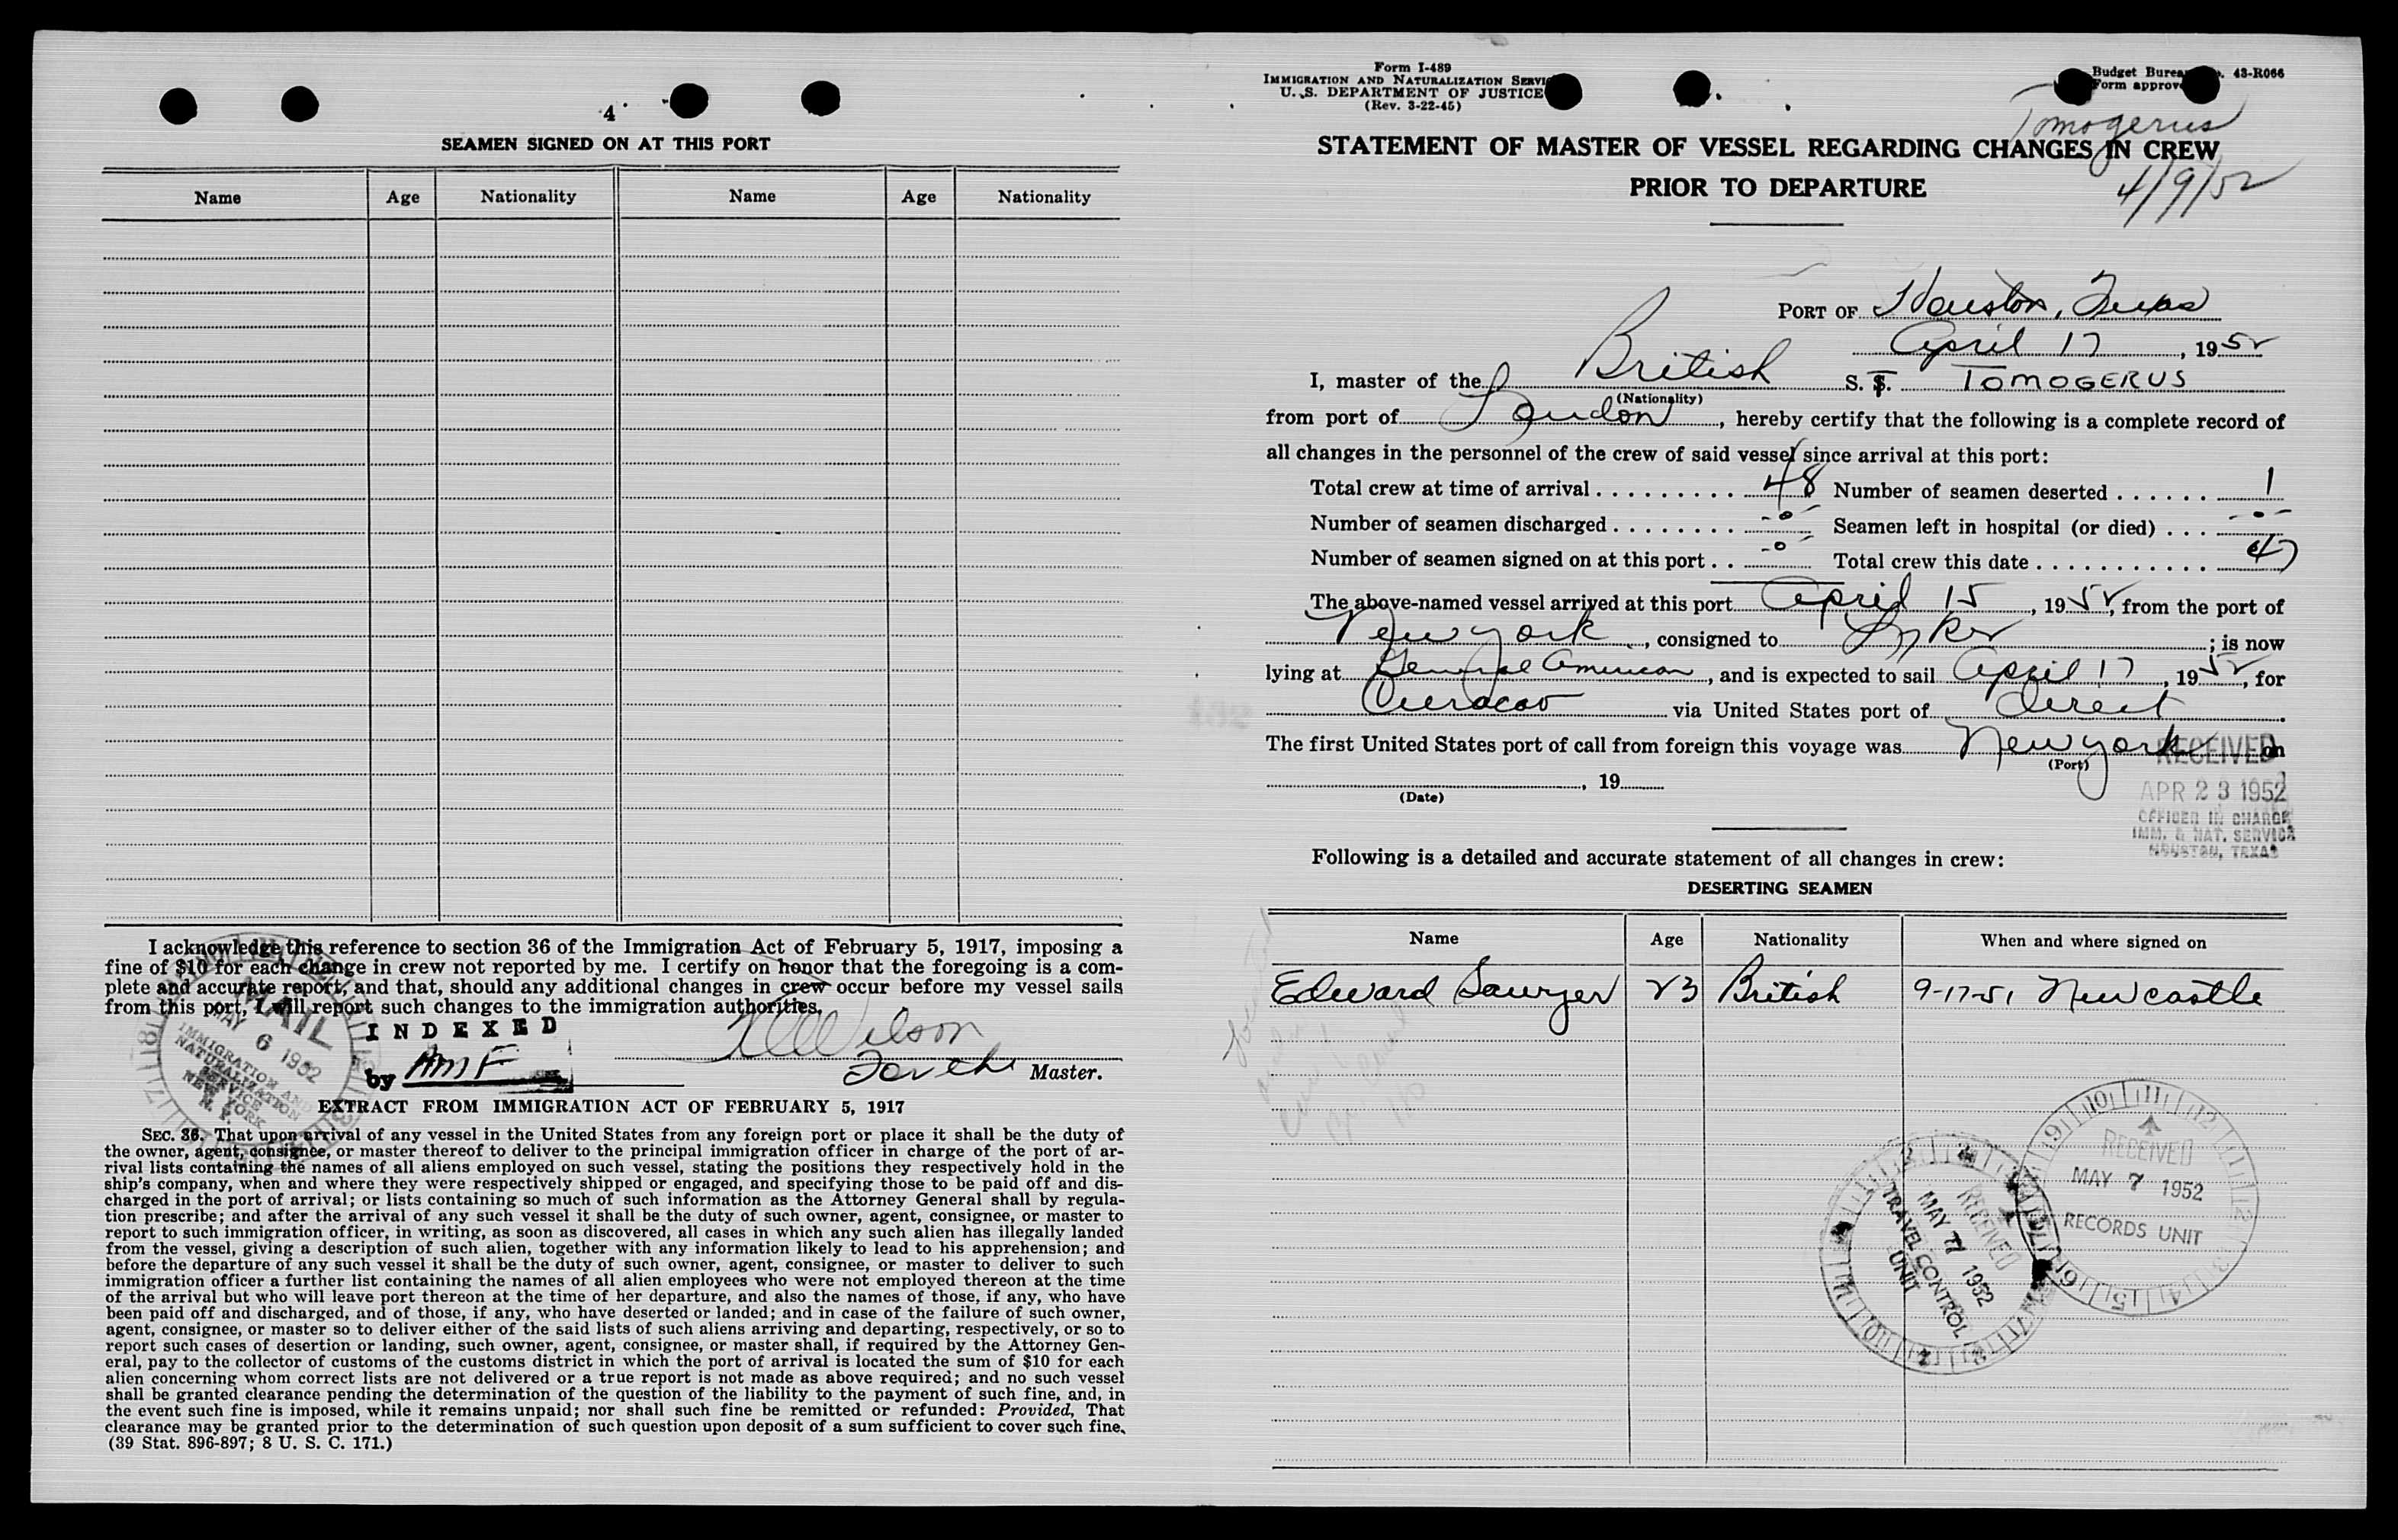 4
SEAMEN SIGNED ON AT THIS PORT
Name Age Nationality Name Age Nationality
I acknowledge this reference to section 36 of the Immigration Act of February 5, 1917, imposing a
fine of $10 for each change in crew not reported by me. I certify on honor that the foregoing is a com-
plete and accurate report, and that, should any additional changes in crew occur before my vessel sails
from this port, I will report such changes to the immigration authorities.
INDEXED
by AMF
Wilson
For the Master.
MAIL
MAY 6 1952
IMMIGRATION AND
NATURALIZATION
SERVICE
NEW YORK
N. Y.
EXTRACT FROM IMMIGRATION ACT OF FEBRUARY 5, 1917
SEC. 36. That upon arrival of any vessel in the United States from any foreign port or place it shall be the duty of
the owner, agent, consignee, or master thereof to deliver to the principal immigration officer in charge of the port of ar-
rival lists containing the names of all aliens employed on such vessel, stating the positions they respectively hold in the
ship's company, when and where they were respectively shipped or engaged, and specifying those to be paid off and dis-
charged in the port of arrival; or lists containing so much of such information as the Attorney General shall by regula-
tion prescribe; and after the arrival of any such vessel it shall be the duty of such owner, agent, consignee, or master to
report to such immigration officer, in writing, as soon as discovered, all cases in which any such alien has illegally landed
from the vessel, giving a description of such alien, together with any information likely to lead to his apprehension; and
before the departure of any such vessel it shall be the duty of such owner, agent, consignee, or master to deliver to such
immigration officer a further list containing the names of all alien employees who were not employed thereon at the time
of the arrival but who will leave port thereon at the time of her departure, and also the names of those, if any, who have
been paid off and discharged, and of those, if any, who have deserted or landed; and in case of the failure of such owner,
agent, consignee, or master so to deliver either of the said lists of such aliens arriving and departing, respectively, or so to
report such cases of desertion or landing, such owner, agent, consignee, or master shall, if required by the Attorney Gen-
eral, pay to the collector of customs of the customs district in which the port of arrival is located the sum of $10 for each
alien concerning whom correct lists are not delivered or a true report is not made as above required; and no such vessel
shall be granted clearance pending the determination of the question of the liability to the payment of such fine, and, in
the event such fine is imposed, while it remains unpaid; nor shall such fine be remitted or refunded: Provided, That
clearance may be granted prior to the determination of such question upon deposit of a sum sufficient to cover such fine.
(39 Stat. 896-897; 8 U. S. C. 171.)
Form I-489
IMMIGRATION AND NATURALIZATION SERVICE
U. S. DEPARTMENT OF JUSTICE
(Rev. 3-22-45)
Budget Bureau No. 43-R066
Form approved
Tomogerus
4/9/52
STATEMENT OF MASTER OF VESSEL REGARDING CHANGES IN CREW
PRIOR TO DEPARTURE
PORT OF Houston, Texas
April 17, 1952
I, master of the British S. S. TOMOGERUS
(Nationality)
from port of London, hereby certify that the following is a complete record of
all changes in the personnel of the crew of said vessel since arrival at this port:
Total crew at time of arrival 48 Number of seamen deserted 1
Number of seamen discharged -0- Seamen left in hospital (or died) -0-
Number of seamen signed on at this port -0- Total crew this date 47
The above-named vessel arrived at this port April 15, 1952, from the port of
New York, consigned to Lykes; is now
lying at General American, and is expected to sail April 17, 1952, for
Curacao via United States port of direct.
The first United States port of call from foreign this voyage was New York on
(Port)
, 19
(Date)
RECEIVED
APR 23 1952
OFFICER IN CHARGE
IMM. & NAT. SERVICE
HOUSTON, TEXAS
Following is a detailed and accurate statement of all changes in crew:
DESERTING SEAMEN
Name Age Nationality When and where signed on
Edward Sawyer 23 British 9-17-51 Newcastle
RECEIVED
MAY 7 1952
RECORDS UNIT
RECEIVED
MAY 7 1952
TRAVEL CONTROL
UNIT